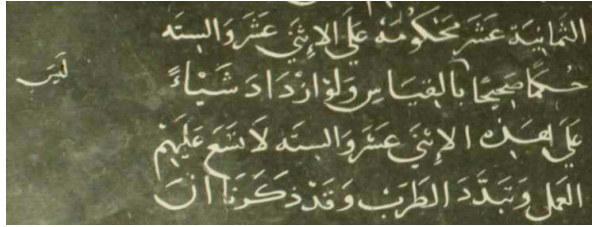 الثمانية عشر محكومه على الاثنى عشر والسته
حكما صحيحا بالقياس ولو ازداد شياء ليس
على هذه الاثنى عشر والسته لاتسع عليهم
العمل وتبدد الطرب وقد ذكرنا ان